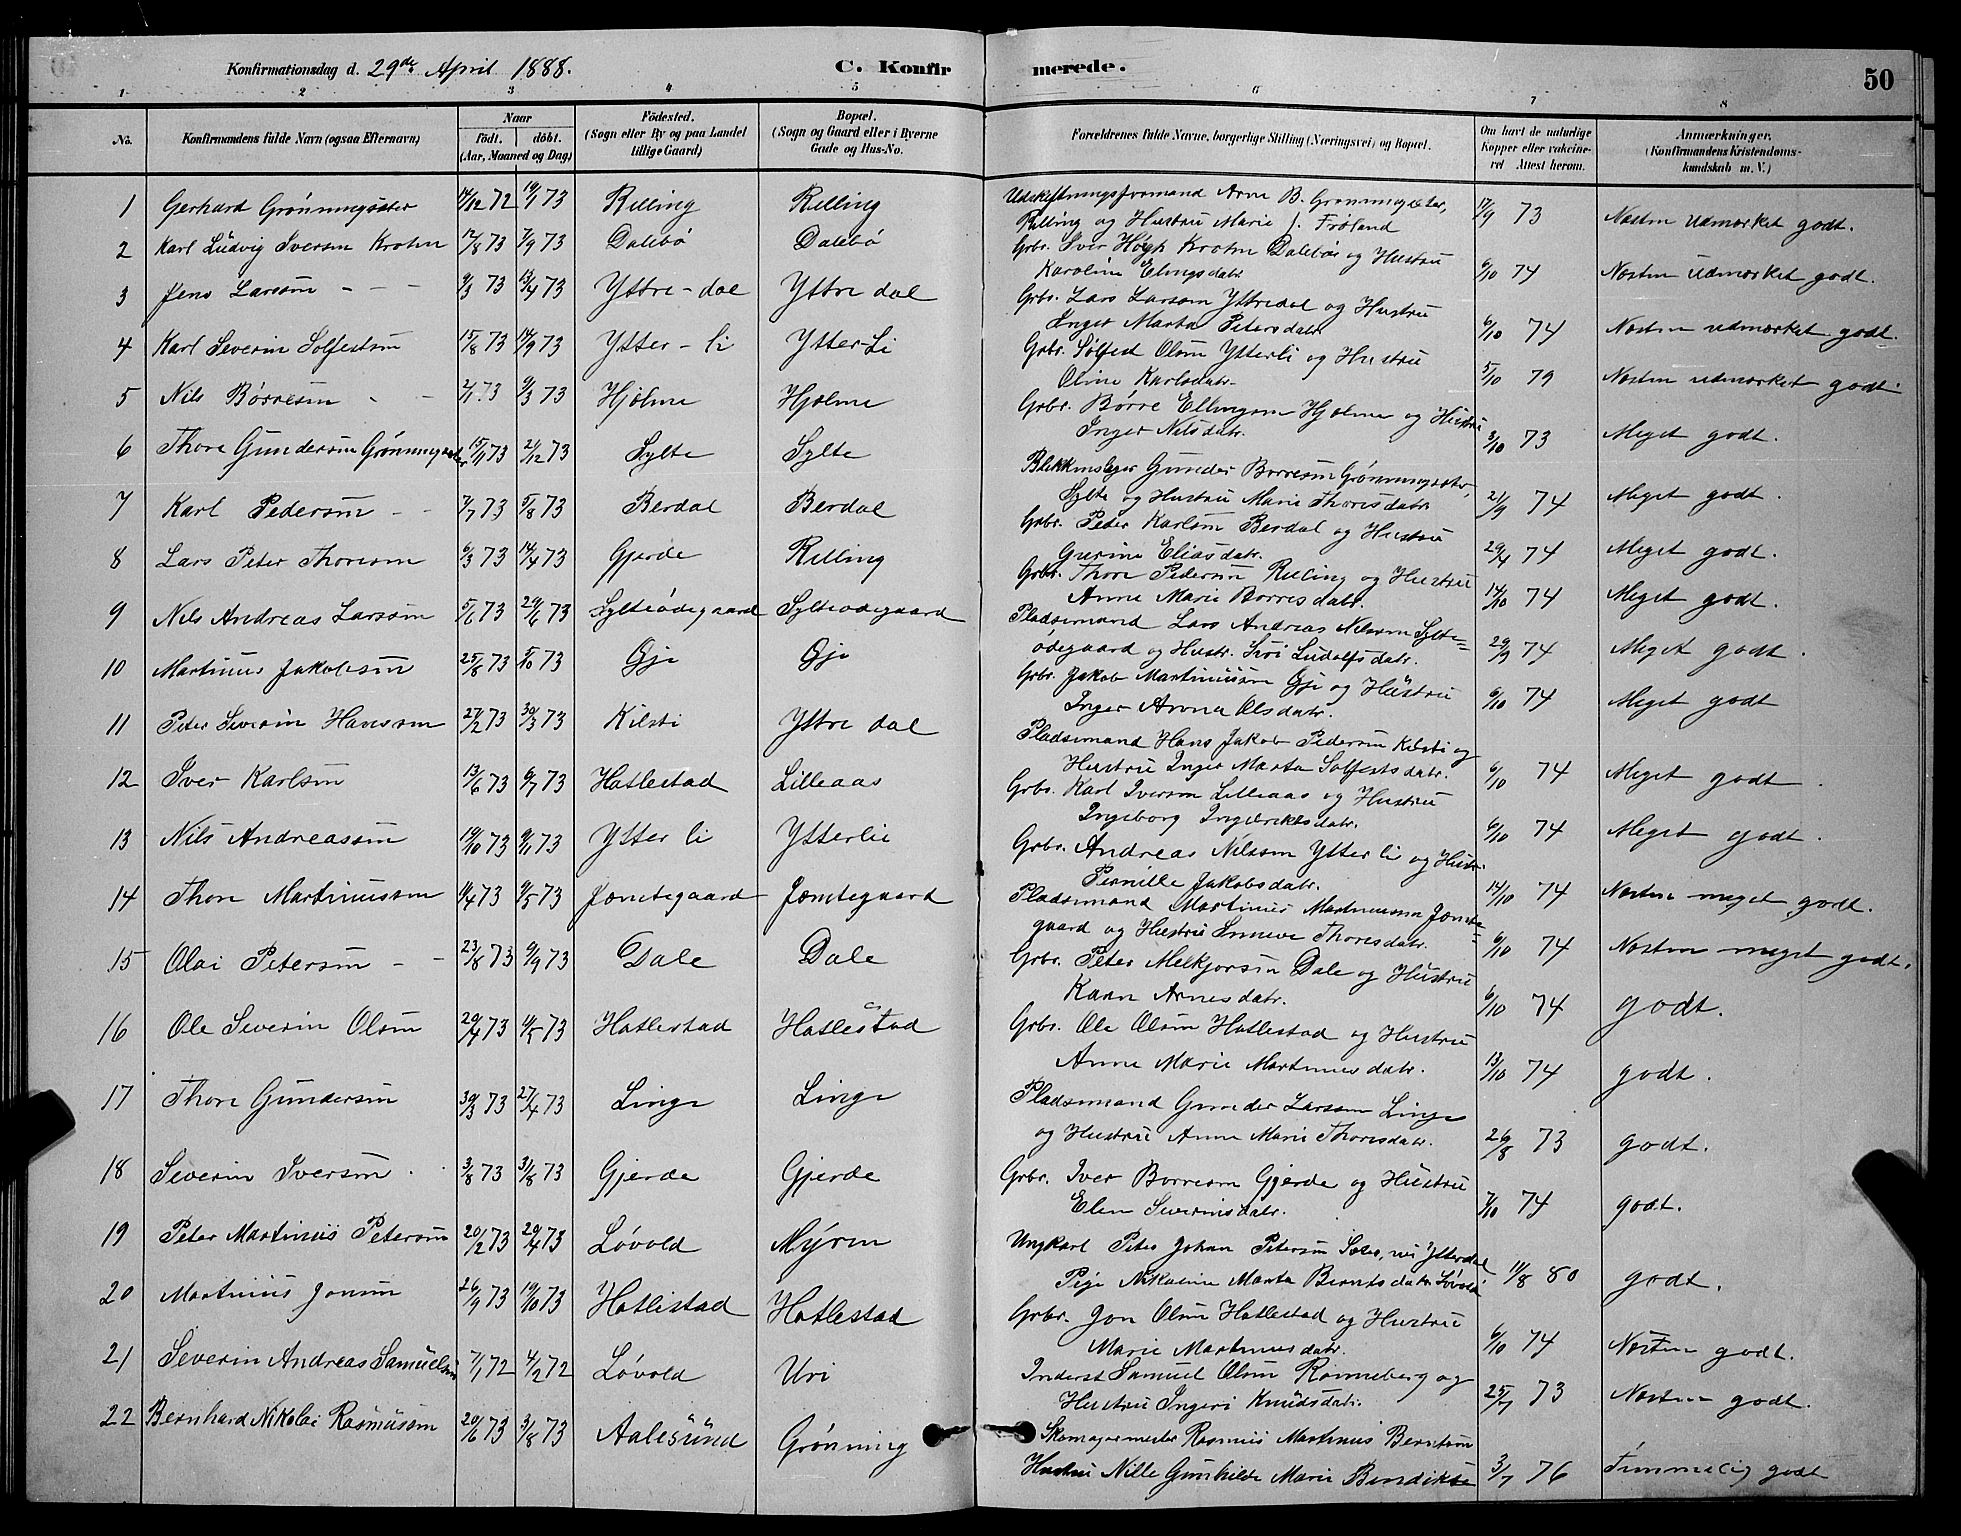 Konfirmationsdag d. 29de April 1888. C. Konfirmerede. 50
1 2 3 4 5 6 7 8
No. Konfirmandens fulde Navn (ogsaa Efternavn) Naar født. døbt. (Aar, Maaned og Dag) Fødested. (Sogn eller By og paa Landet tillige Gaard) Bopæl. (Sogn og Gaard eller i Byerne Gade og Hus-No. Forældrenes fulde Navne, borgerlige Stilling (Næringsvei) og Bopæl. Om havt de naturlige Kopper eller vakcineret Attest herom. Anmærkninger. (Konfirmandens Kristendomskundskab m. V.)
1 Gerhard Grønningsæter 14/12 72 19/1 73 Relling Relling Udskiftningsformand Arne B. Grønningsæter,
Relling og Hustru Marie J. Frøland 17/9 73 Næsten udmærket godt.
2 Karl Ludvig Iversen Krohn 17/8 73 7/9 73 Dalebø Dalebø Grbr. Iver Høgh Krohn Dalebø og Hustru
Karoline Elingsdatr. 6/10 74 Næsten udmærket godt.
3 Jens Larsen - - - 9/3 73 13/4 73 Yttre-dal Yttre dal Grbr. Lars Larsen Yttredal og Hustru
Inger Marta Petersdatr. 6/10 74 Næsten udmærket godt.
4 Karl Severin Solfestsen 15/8 73 14/9 73 Ytter-li Ytter-Li Grbr. Sølfest Olsen Ytterli og Hustru
Oline Karlsdatr. 5/10 79 Næsten udmærket godt.
5 Nils Børresen - - 2/1 73 9/3 73 Hjelme Hjelme Grbr. Børre Ellingsen Hjelme og Hustru
Inger Nilsdatr. 3/10 73 Meget godt.
6 Thore Gundersen Grønningsæter 15/11 73 21/12 73 Sylte Sylte Blikkenslager Gunder Børresen Grønningsæter,
Sylte og Hustru Marie Thoresdatr. 21/9 74 Meget godt.
7 Karl Pedersen - - 7/7 73 5/8 73 Berdal Berdal Grbr. Peder Karlsen Berdal og Hustru
Gurine Eliasdatr. 29/4 74 Meget godt.
8 Lars Peter Thoresen 6/3 73 14/4 73 Gjerde Relling Grbr. Thore Pedersen Relling og Hustru
Anne Marie Børresdatr. 14/10 74 Meget godt.
9 Nils Andreas Larsen 5/6 73 29/6 73 Sylteødegaard Sylteødegaard Pladsemand Lars Andreas Nilsen Sylte-
ødegaard og Hustr. Siri Ludolfsdatr. 29/9 74 Meget godt.
10 Martinus Jakobsen 25/8 73 5/10 73 Øje Øje Grbr. Jakob Martinussen Øje og Hustru
Inger Anna Olsdatr. 6/10 74 Meget godt
11 Peter Severin Hansen 27/2 73 30/3 73 Kilsti Yttre dal Pladsemand Hans Jakob Pedersen Kilsti og
Hustru Inger Marta Solfestsdatr. 6/10 74 Meget godt.
12 Iver Karlsen 13/6 73 6/7 73 Hatlestad Lilleaas Grbr. Karl Iversen Lilleaas og Hustru
Ingeborg Ingebriktsdatr. 6/10 74 Meget godt.
13 Nils Andreassen 19/10 73 9/11 73 Ytter li Ytterlie Grbr. Andreas Nilsen Ytter li og Hustr.
Pernille Jakobsdatr. 14/10 74 Næsten meget godt.
14 Thore Martinussen 11/4 73 11/5 73 Jemtegaard Jemtegaard Pladsemand Martinus Martinussen Jemte-
gaard og Hustru Synneve Thoresdatr. 6/10 74 Næsten meget godt.
15 Olai Petersen - - 23/8 73 9/9 73 Dale Dale Grbr. Peter Melkjorsen Dale og Hustru
Karen Arnesdatr. 6/10 74 godt.
16 Ole Severin Olsen 29/4 73 11/5 73 Hatlestad Hatlestad Grbr. Ole Olsen Hatlestad og Hustru
Anne Marie Martinusdatr. 13/10 74 godt.
17 Thore Gundersen 30/3 73 27/4 73 Linge Linge Pladsemand Gunder Larsen Linge
og Hustru Anne Marie Thoresdatr. 26/8 73 godt.
18 Severin Iversen 3/8 73 31/8 73 Gjerde Gjerde Grbr. Iver Børresen Gjerde og Hustru
Elen Severinsdatr. 7/10 74 godt.
19 Peter Martinus Petersen 20/2 73 29/4 73 Løvold Myren Ungkarl Peter Johan Petersen nu Ytterdal
Pige Nikoline Marta Berntsdatr. Løvold 11/8 80 godt.
20 Martinus Jonsen 26/9 73 19/10 73 Hatlestad Hatlestad Grbr. Jon Olsen Hatlestad og Hustru
Marie Martinusdatr. 6/10 74 Næsten godt.
21 Severin Andreas Samuelsen 7/1 72 4/2 72 Løvold Uri Inderst Samuel Olsen Rønneberg og
Hustru Ingeri Knudsdatr. 25/7 73 Næsten godt.
22 Bernhard Nikolai Rasmussen 20/6 73 3/8 73 Aalesund Grønning Skomagermester Rasmus Martinus Berntsen
Hustru Nille Gunhilde Marie 3/7 76 Temmelig godt